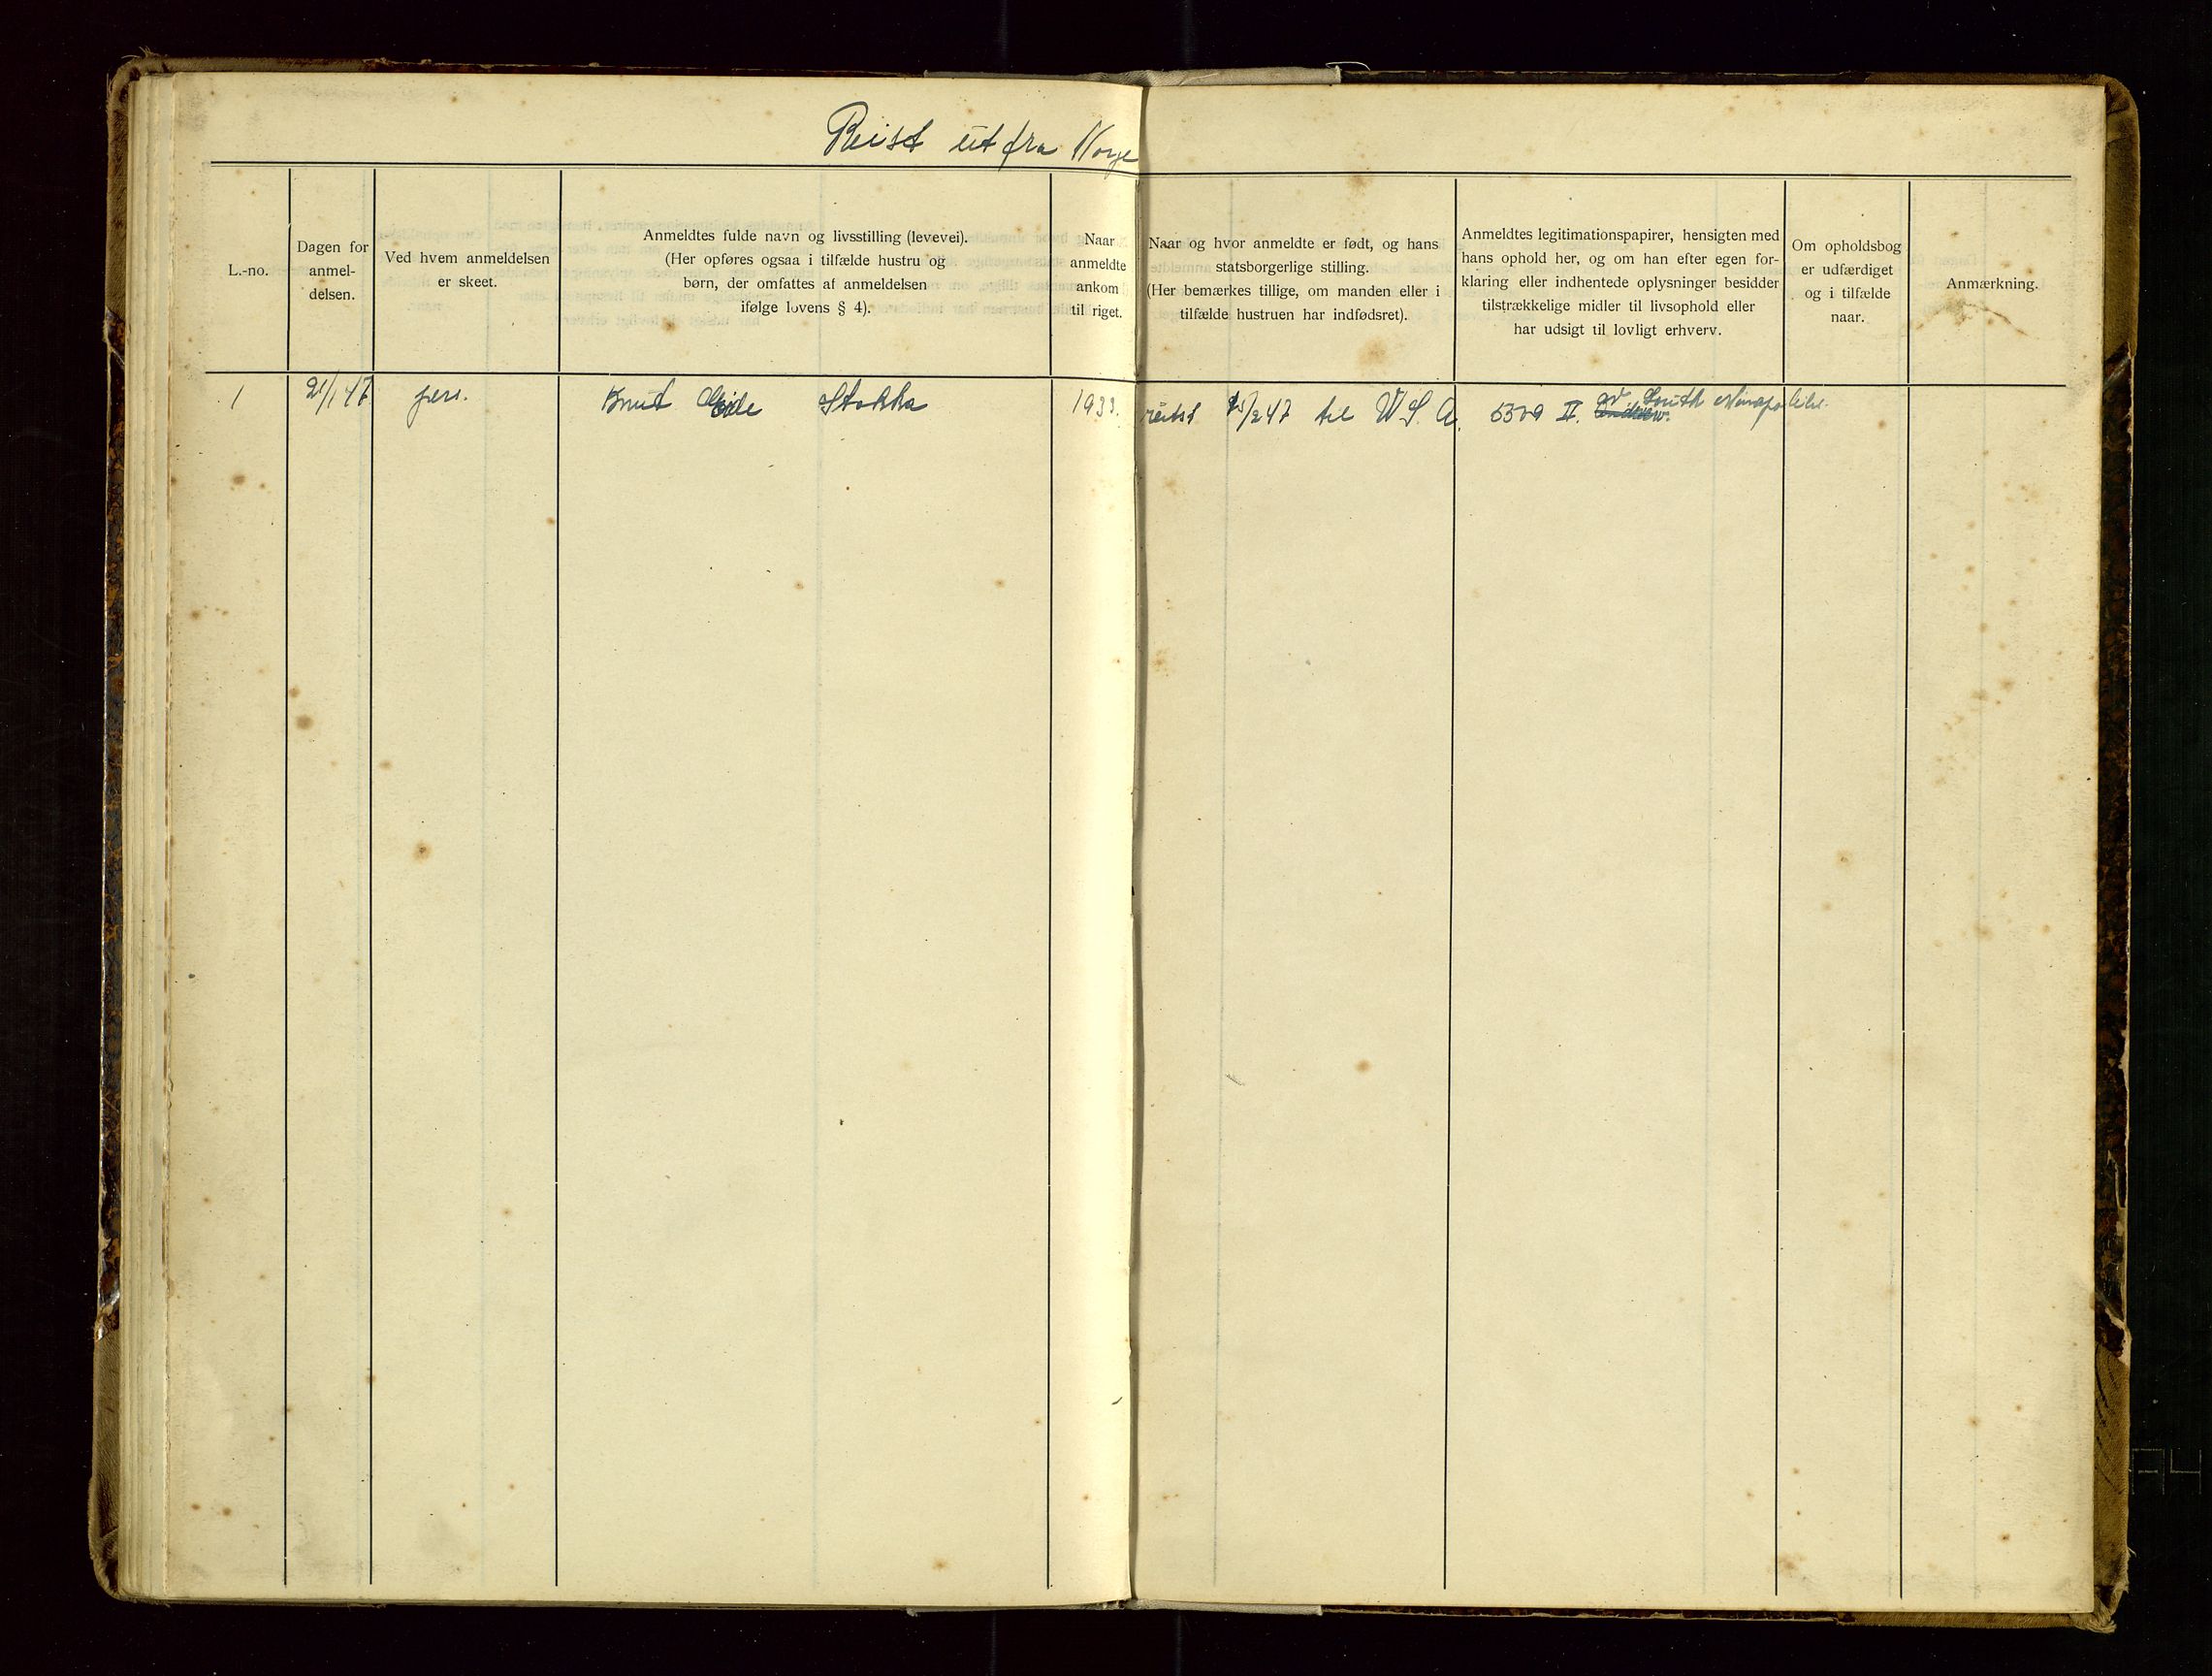 Reist ut fra Norge
L.-no.
Dagen for
anmel-
delsen.
Ved hvem anmeldelsen
er skeet.
Anmeldtes fulde navn og livsstilling (levevei).
(Her opføres ogsaa i tilfælde hustru og
børn, der omfattes af anmeldelsen
ifølge lovens § 4).
Naar
anmeldte
ankom
til riget.
Naar og hvor anmeldte er født, og hans
statsborgerlige stilling.
(Her bemærkes tillige, om manden eller i
tilfælde hustruen har indfødsret).
Anmeldtes legitimationspapirer, hensigten med
hans ophold her, og om han efter egen for-
klaring eller indhentede oplysninger besidder
tilstrækkelige midler til livsophold eller
har udsigt til lovligt erhverv.
Om opholdsbog
er udfærdiget
og i tilfælde
naar.
Anmærkning.
1 21/1 47 pers. Knut Eide Stokka 1933. reist /2 47 til U.S.A. 5329 II. av South